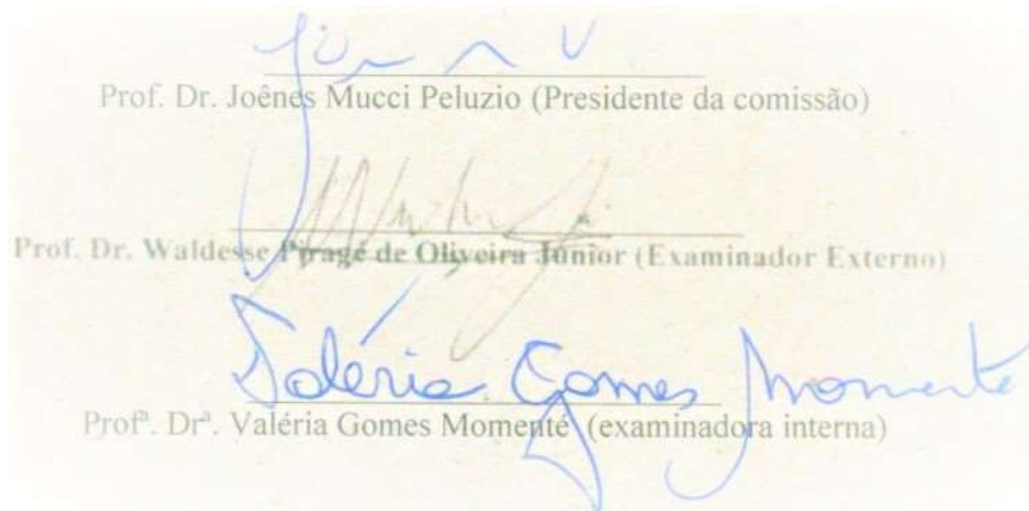 Prof. Dr. Joênes Mucci Peluzio (Presidente da comissão)
Prof. Dr. Waldesse Piragé de Oliveira Júnior (Examinador Externo)
Valéria Gomes Momenté
Profª. Drª. Valéria Gomes Momenté (examinadora interna)